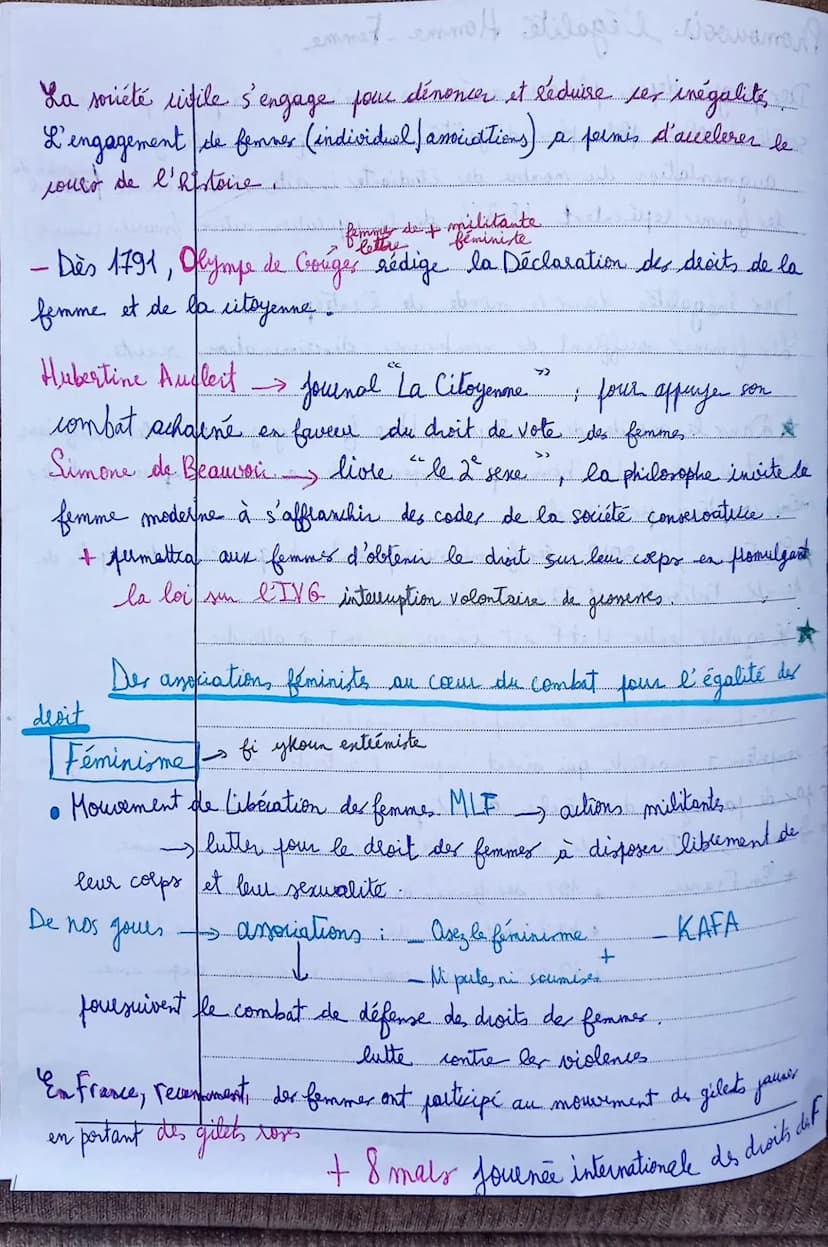 La société civile s'engage pour dénoncer et réduire ces inégalités.
L'engagement de femmes (individuel/associations) a permis d'accelerer le
cours de l'histoire.
femmes de lettre + militante féministe
– Dès 1791, Olympe de Gouges rédige la Déclaration des droits de la
femme et de la citoyenne.
Hubertine Auclert → journal "La Citoyenne", pour appuyer son
combat achainé en faveur du droit de vote des femmes. ★
Simone de Beauvoir → livre "le 2e sexe", la philosophe invite la
femme moderne à s'affranchir des codes de la société conservatrice.
+ permettra aux femmes d'obtenir le droit sur leur corps en promulgant
la loi sur l'IVG interruption volontaire de grossesses.
★
Des associations féministe au cœur du combat pour l'égalité des
droit
Féminisme → fi ykoun extrémiste
• Mouvement de Libération des femmes MLF → actions militants
→ lutter pour le droit des femmes à disposer librement de
leur corps et leur sexualité.
De nos jours → associations : – Osez le féminisme – KAFA
↓ – Ni putes, ni soumises +
poursuivent le combat de défense des droits des femmes.
lutte contre les violences
En France, recemment, des femmes ont participé au mouvement des gilets jaunes
en portant des gilets roses
+ 8 mars Journée internationale des droits des F